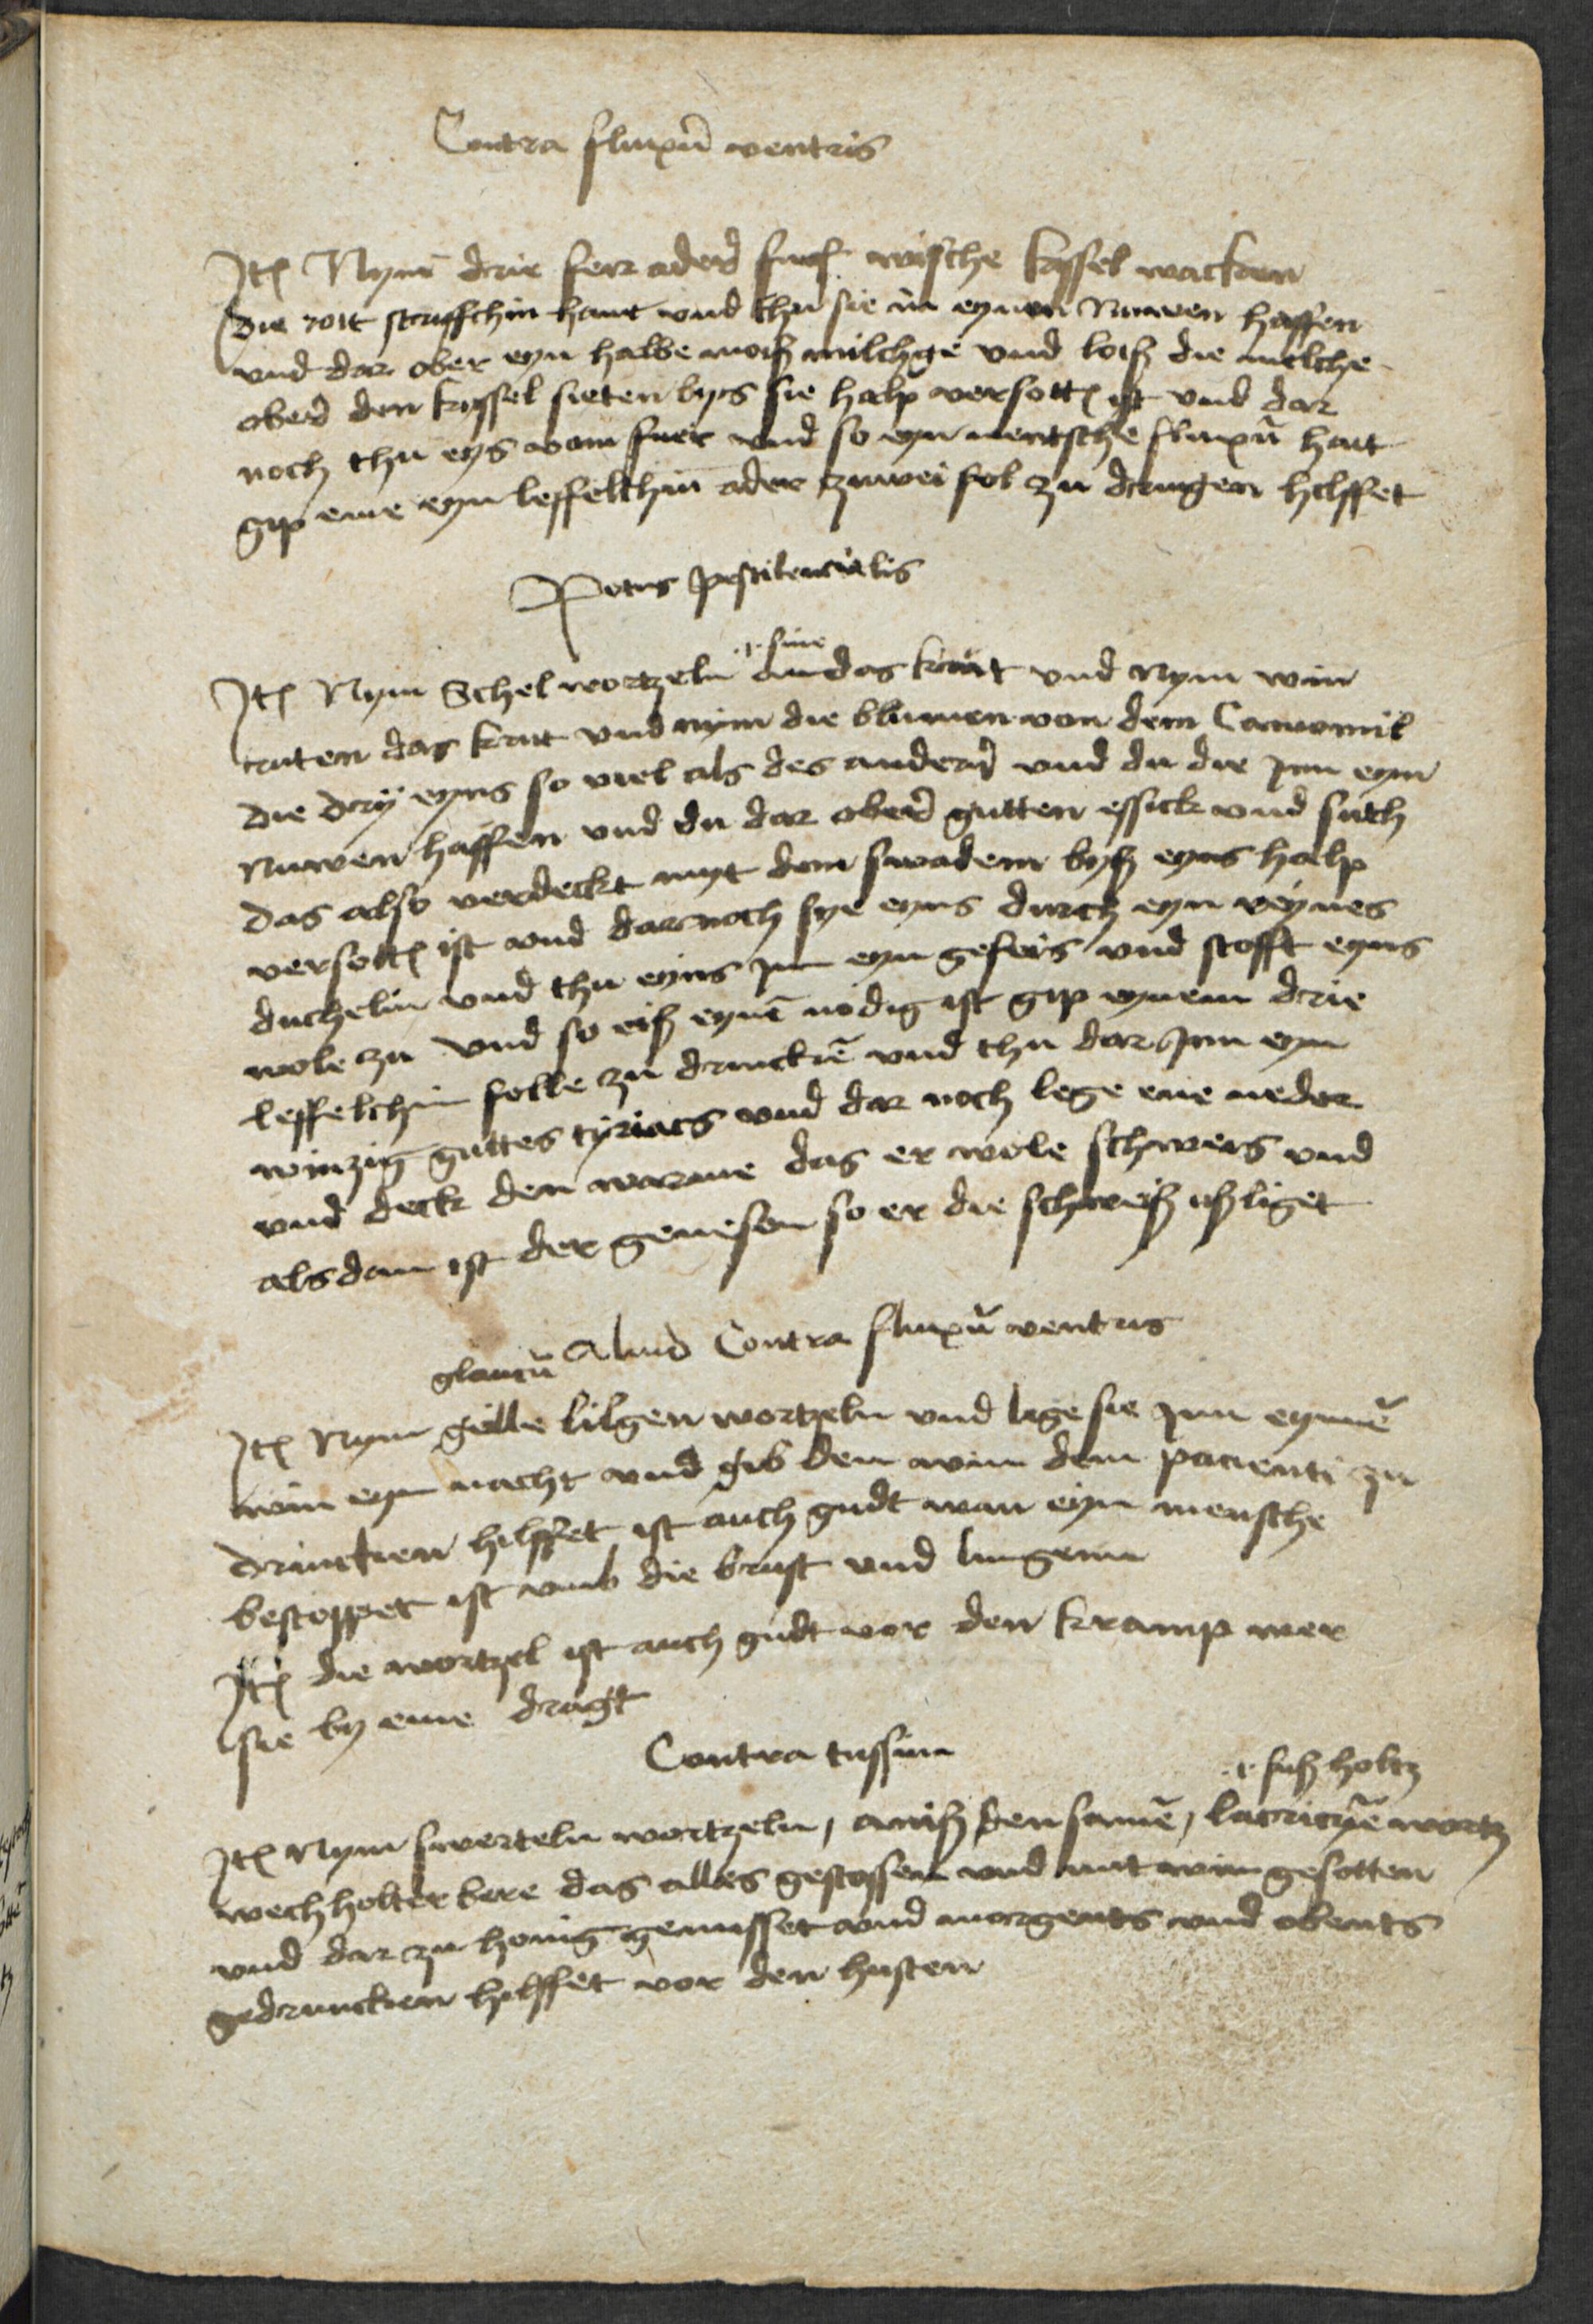 Contra fluxũ ventris
Jtꝫ Nym̃ drie ferr aderꝰ funf wische kyssel wacken
die roit striffchin hant vnd thu sie in eynen Nuwen haffen
vnd dar ober eyn halbe moiß milchge vnd loiß die milche
oberꝰ den kyssel sieten bys sie halp versottꝫ ist vnd dar
noch thu eys vom fuer vnd so eyn mentsche fluxũ hait
gip eme eyn leffelchin ader zuwei fol zu dringen hilffet
Potus pestilencialis
.i. sine
Jtꝫ Nym Schel wortzeln an das krut vnd Nym win
ruten das krut vnd nym die blumen von dem Camomil
die dry eyns so viel als des anderꝰ vnd du die jnn eyn
Nuwen haffen vnd du dar oberꝰ gutten essick vnd suth
das also verdeckt myt dem swadem byß eyns halp
versottꝫ ist vnd dar noch sye eyns durch eyn reynes
duchelin vnd thu eyns jnn eyn gefeis vnd stofft eyns
wole zu vnd so eiß eynẽ nodig ist gip eynem drie
leffelchin folle zu drinckẽ vnd thu dar jnn eyn
winzig guttes tyriacs vnd dar noch lege ene neder
vnd deck den warme das er wole schweis vnd
als dann ist der genesen so er die schweiß ußliget
Aliud Contra fluxũ ventris
glaucũ
Jtꝫ Nym gelle lilgen wortzeln vnd lege sie jnn eynnẽ
win eyn nacht vnd gib den win dem pacienti zu
drincken hilffet ist auch gudt wan eyn mensche
bestoppet ist vmb die brust vnd lungenn
Jtꝫ die wortzel ist auch gudt vor den kramp wer
sie by eme dragt
Contra tussim
.i. suß holtz
Jtꝫ Nym swerteln wortzeln, aniß den samẽ, lacricyẽ wortz
wechholter bere das alles gestossen vnd mit win gesotten
vnd dar zu honig gemisset vnd morgents vnd obents
gedruncken hilffet vor den husten